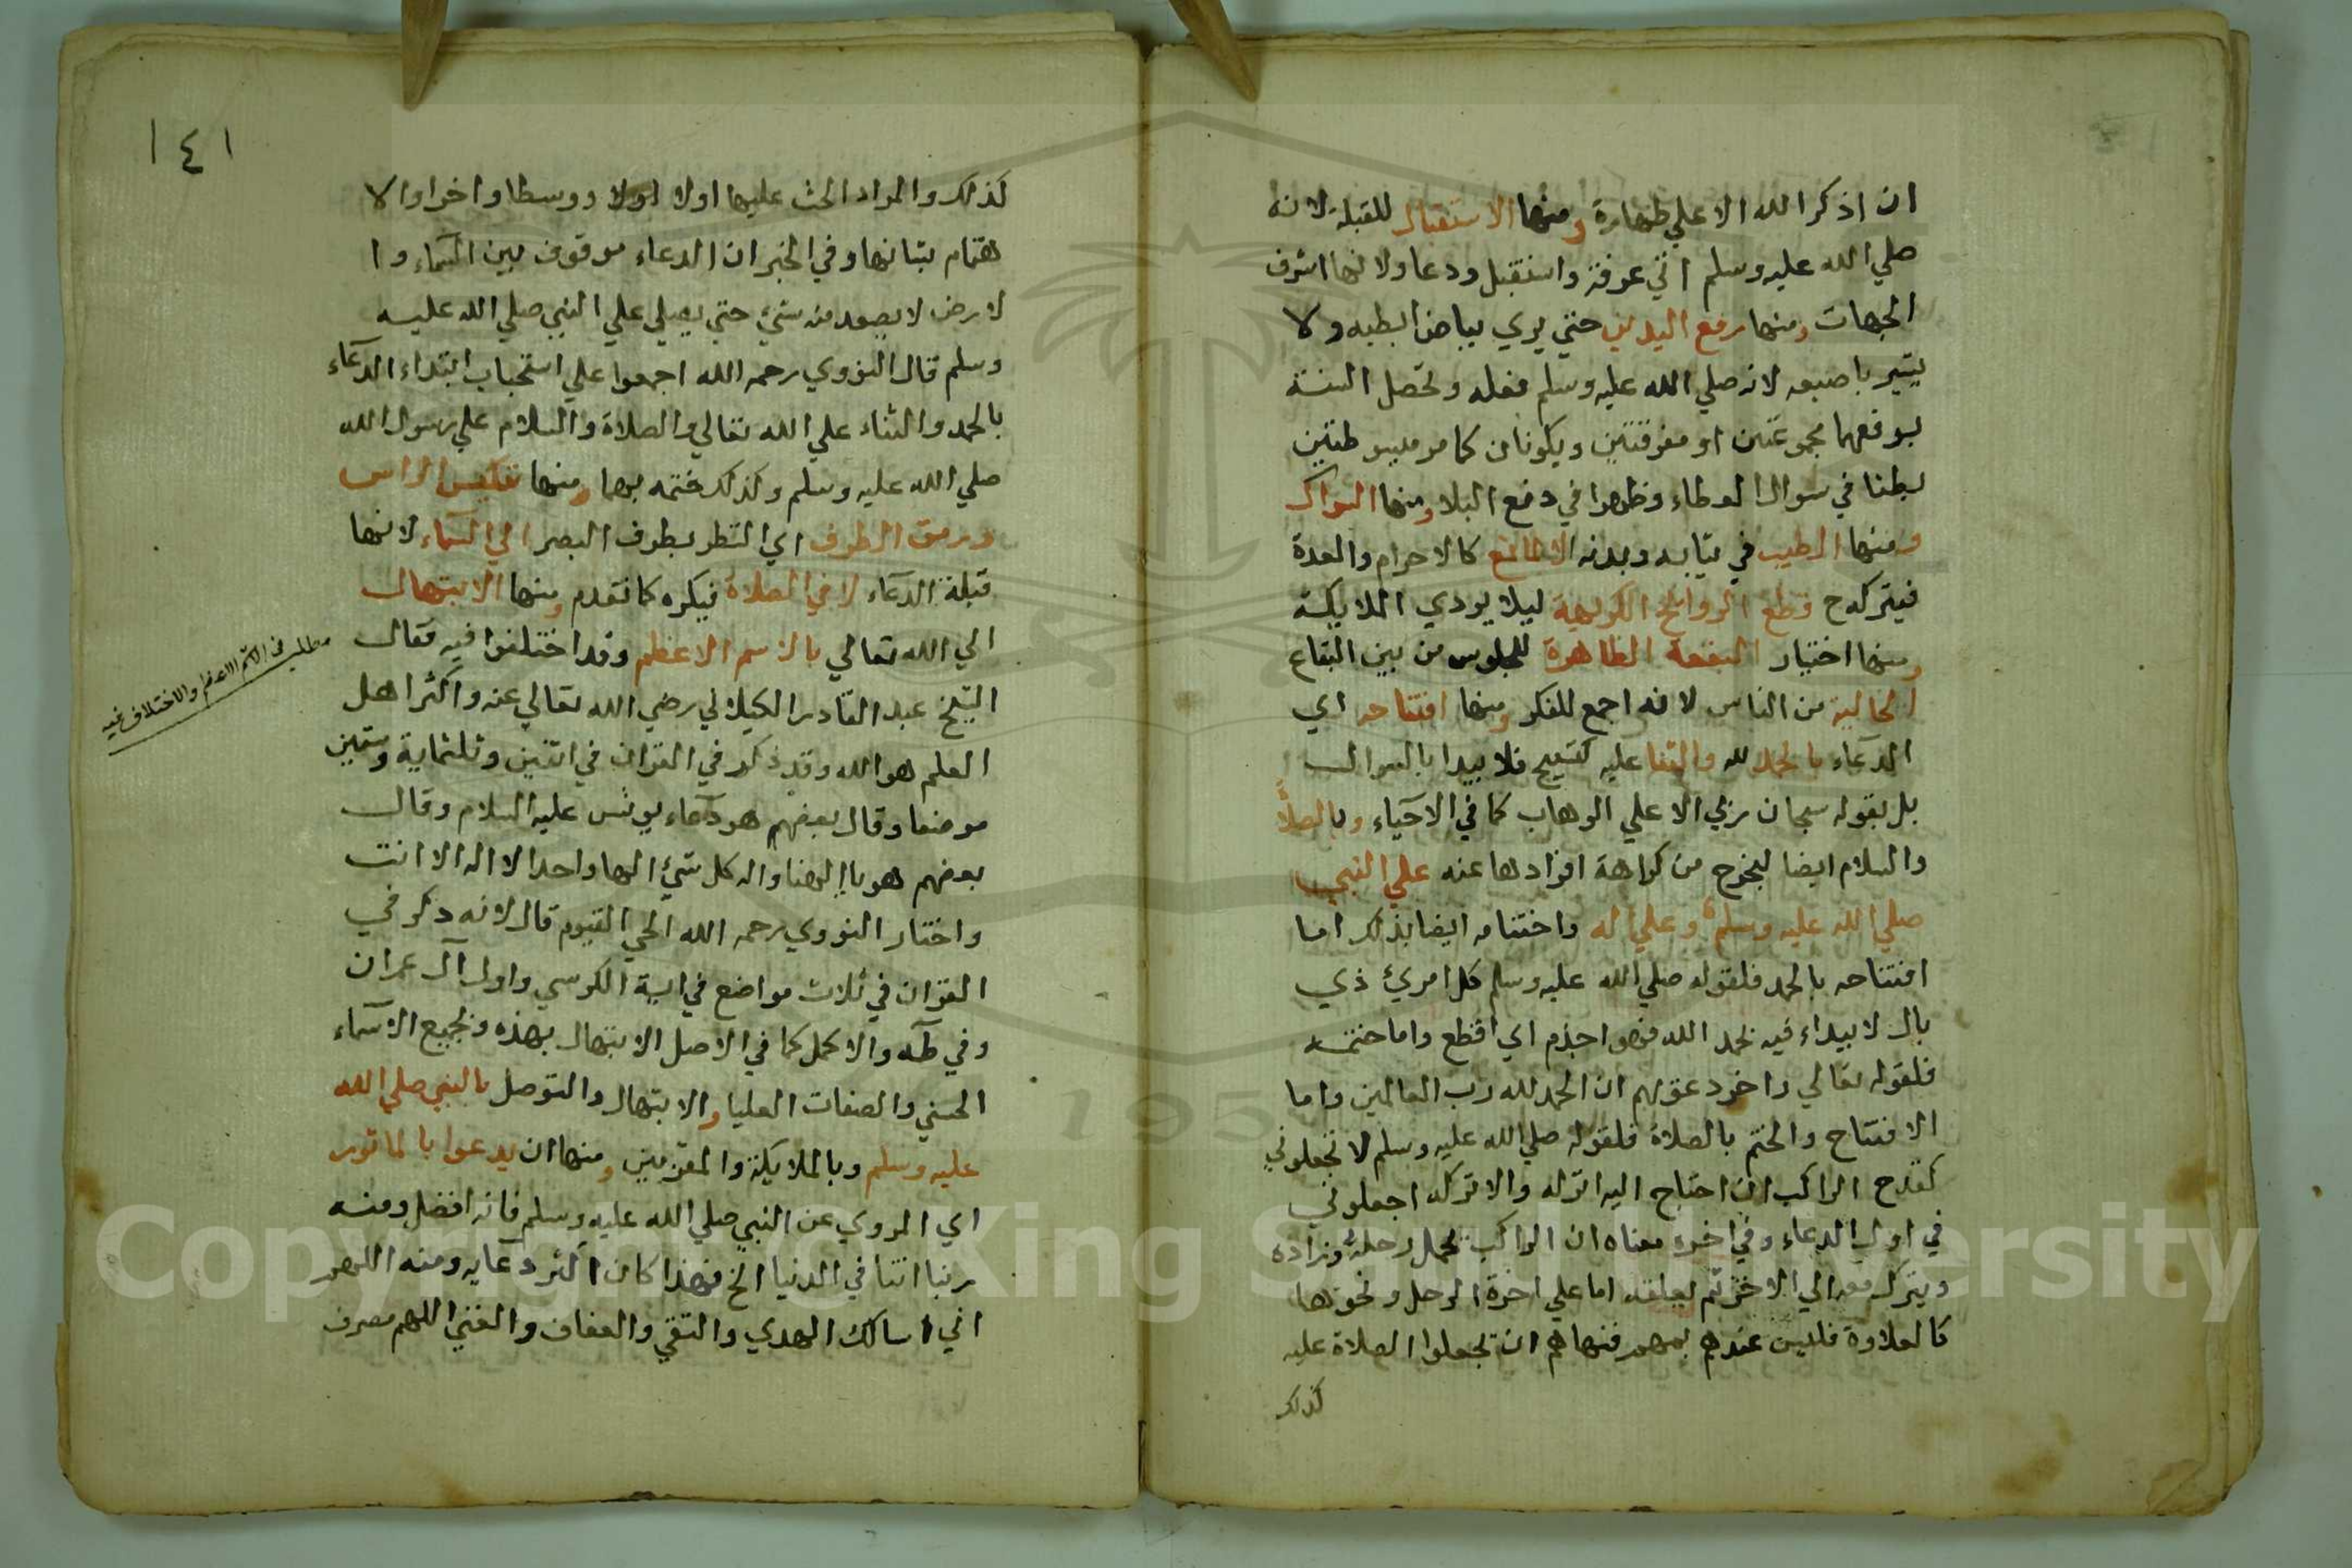 ان اذكر الله الا علي طهارة ومنها الاستقبال للقبلة لانه
صلي الله عليه وسلم اتي عرفة واستقبل ودعا ولانها اشرف
الجهات ومنها رفع اليدين حتي يري بياض ابطيه ولا
يشير باصبعه لانه صلي الله عليه وسلم فعله وتحصل السنة
برفعهما مجموعتين او مفرقتين ويكونان كما مر مبسوطتين
بطنا في سوال العطاء وظهرا في دفع البلا ومنها السواك
ومنها الطيب في ثيابه وبدنه الا لمانع كالاحرام والعدة
فيترك وح قطع الروائح الكريهة ليلا يودي الملايكة
ومنها اختيار البقعة الطاهرة للجلوس من بين البقاع
الخالية من الناس لانه اجمع للفكر ومنها افتتاحه اي
الدعاء بالحمد لله والثنا عليه فلا يبدا بالسوال
بل بقوله سبحان ربي الاعلي الوهاب كما في الاحياء وبالصلاة
والسلام ايضا ليخرج من كراهة افرادها عنه علي النبي
صلي الله عليه وسلم وعلي اله واختتامه ايضا بذلك اما
افتتاحه بالحمد فلقوله صلي الله عليه وسلم كل امريء ذي
بال لا يبداء فيه بحمد الله فهو اجذم اي اقطع واما ختمه
فلقوله تعالي واخر دعويهم ان الحمد لله رب العالمين واما
الافتتاح والختم بالصلاة فلقوله صلي الله عليه وسلم لا تجعلوني
كقدح الراكب ان احتاج اليه انزله والا تركه اجعلوني
في اول الدعاء وفي اخره معناه ان الراكب يحمل رحله وزاده
ويترك معه الي الاخر ثم يعلقه اما علي اخرة الرحل ونحوها
كالعلاوة فليس عندهم بمهم فنهاهم ان تجعلوا الصلاة عليه
كذلك
١٤١
كذلك والمراد الحث عليها اولا ووسطا واخرا والا
هتمام بشانها وفي الخبر ان الدعاء موقوف بين السماء وا
لارض لا يصعد منه شيء حتي يصلي علي النبي صلي الله عليه
وسلم قال النووي رحمه الله اجمعوا علي استحباب ابتداء الدعاء
بالحمد والثناء علي الله تعالي والصلاة والسلام علي رسول الله
صلي الله عليه وسلم وكذلك ختمه بهما ومنها تنكيس الراس
ورمق الطرف اي النظر بطرف البصر الي السماء لانها
قبلة الدعاء لا في الصلاة فيكره كما تقدم ومنها الابتهال
الي الله تعالي بالاسم الاعظم وقد اختلفوا فيه فقال
الشيخ عبد القادر الكيلاني رضي الله تعالي عنه واكثر اهل
العلم هو الله وقد ذكر في القران في اثنين وثلثماية وستين
موضعا وقال بعضهم هو دعاء يونس عليه السلام وقال
بعضهم هو يا الهنا واله كل شيء الها واحدا لا اله الا انت
واختار النووي رحمه الله الحي القيوم قال لانه ذكر في
القران في ثلاث مواضع في اية الكرسي واول آل عمران
وفي طه والاكمل كما في الاصل الابتهال بهذه وبجميع الاسماء
الحسني والصفات العليا والابتهال والتوصل بالنبي صلي الله
عليه وسلم وبالملايكة والمقربين ومنها ان يدعوا بالماثور
اي المروي عن النبي صلي الله عليه وسلم فانه افضل ومنه
ربنا اتنا في الدنيا الخ فهذا كان اكثر دعايه ومنه اللهم
اني اسالك الهدي والتقي والعفاف والغني اللهم مصرف
مطلب في الاسم الاعظم والاختلاف فيه
Copyright © King Saud University
195